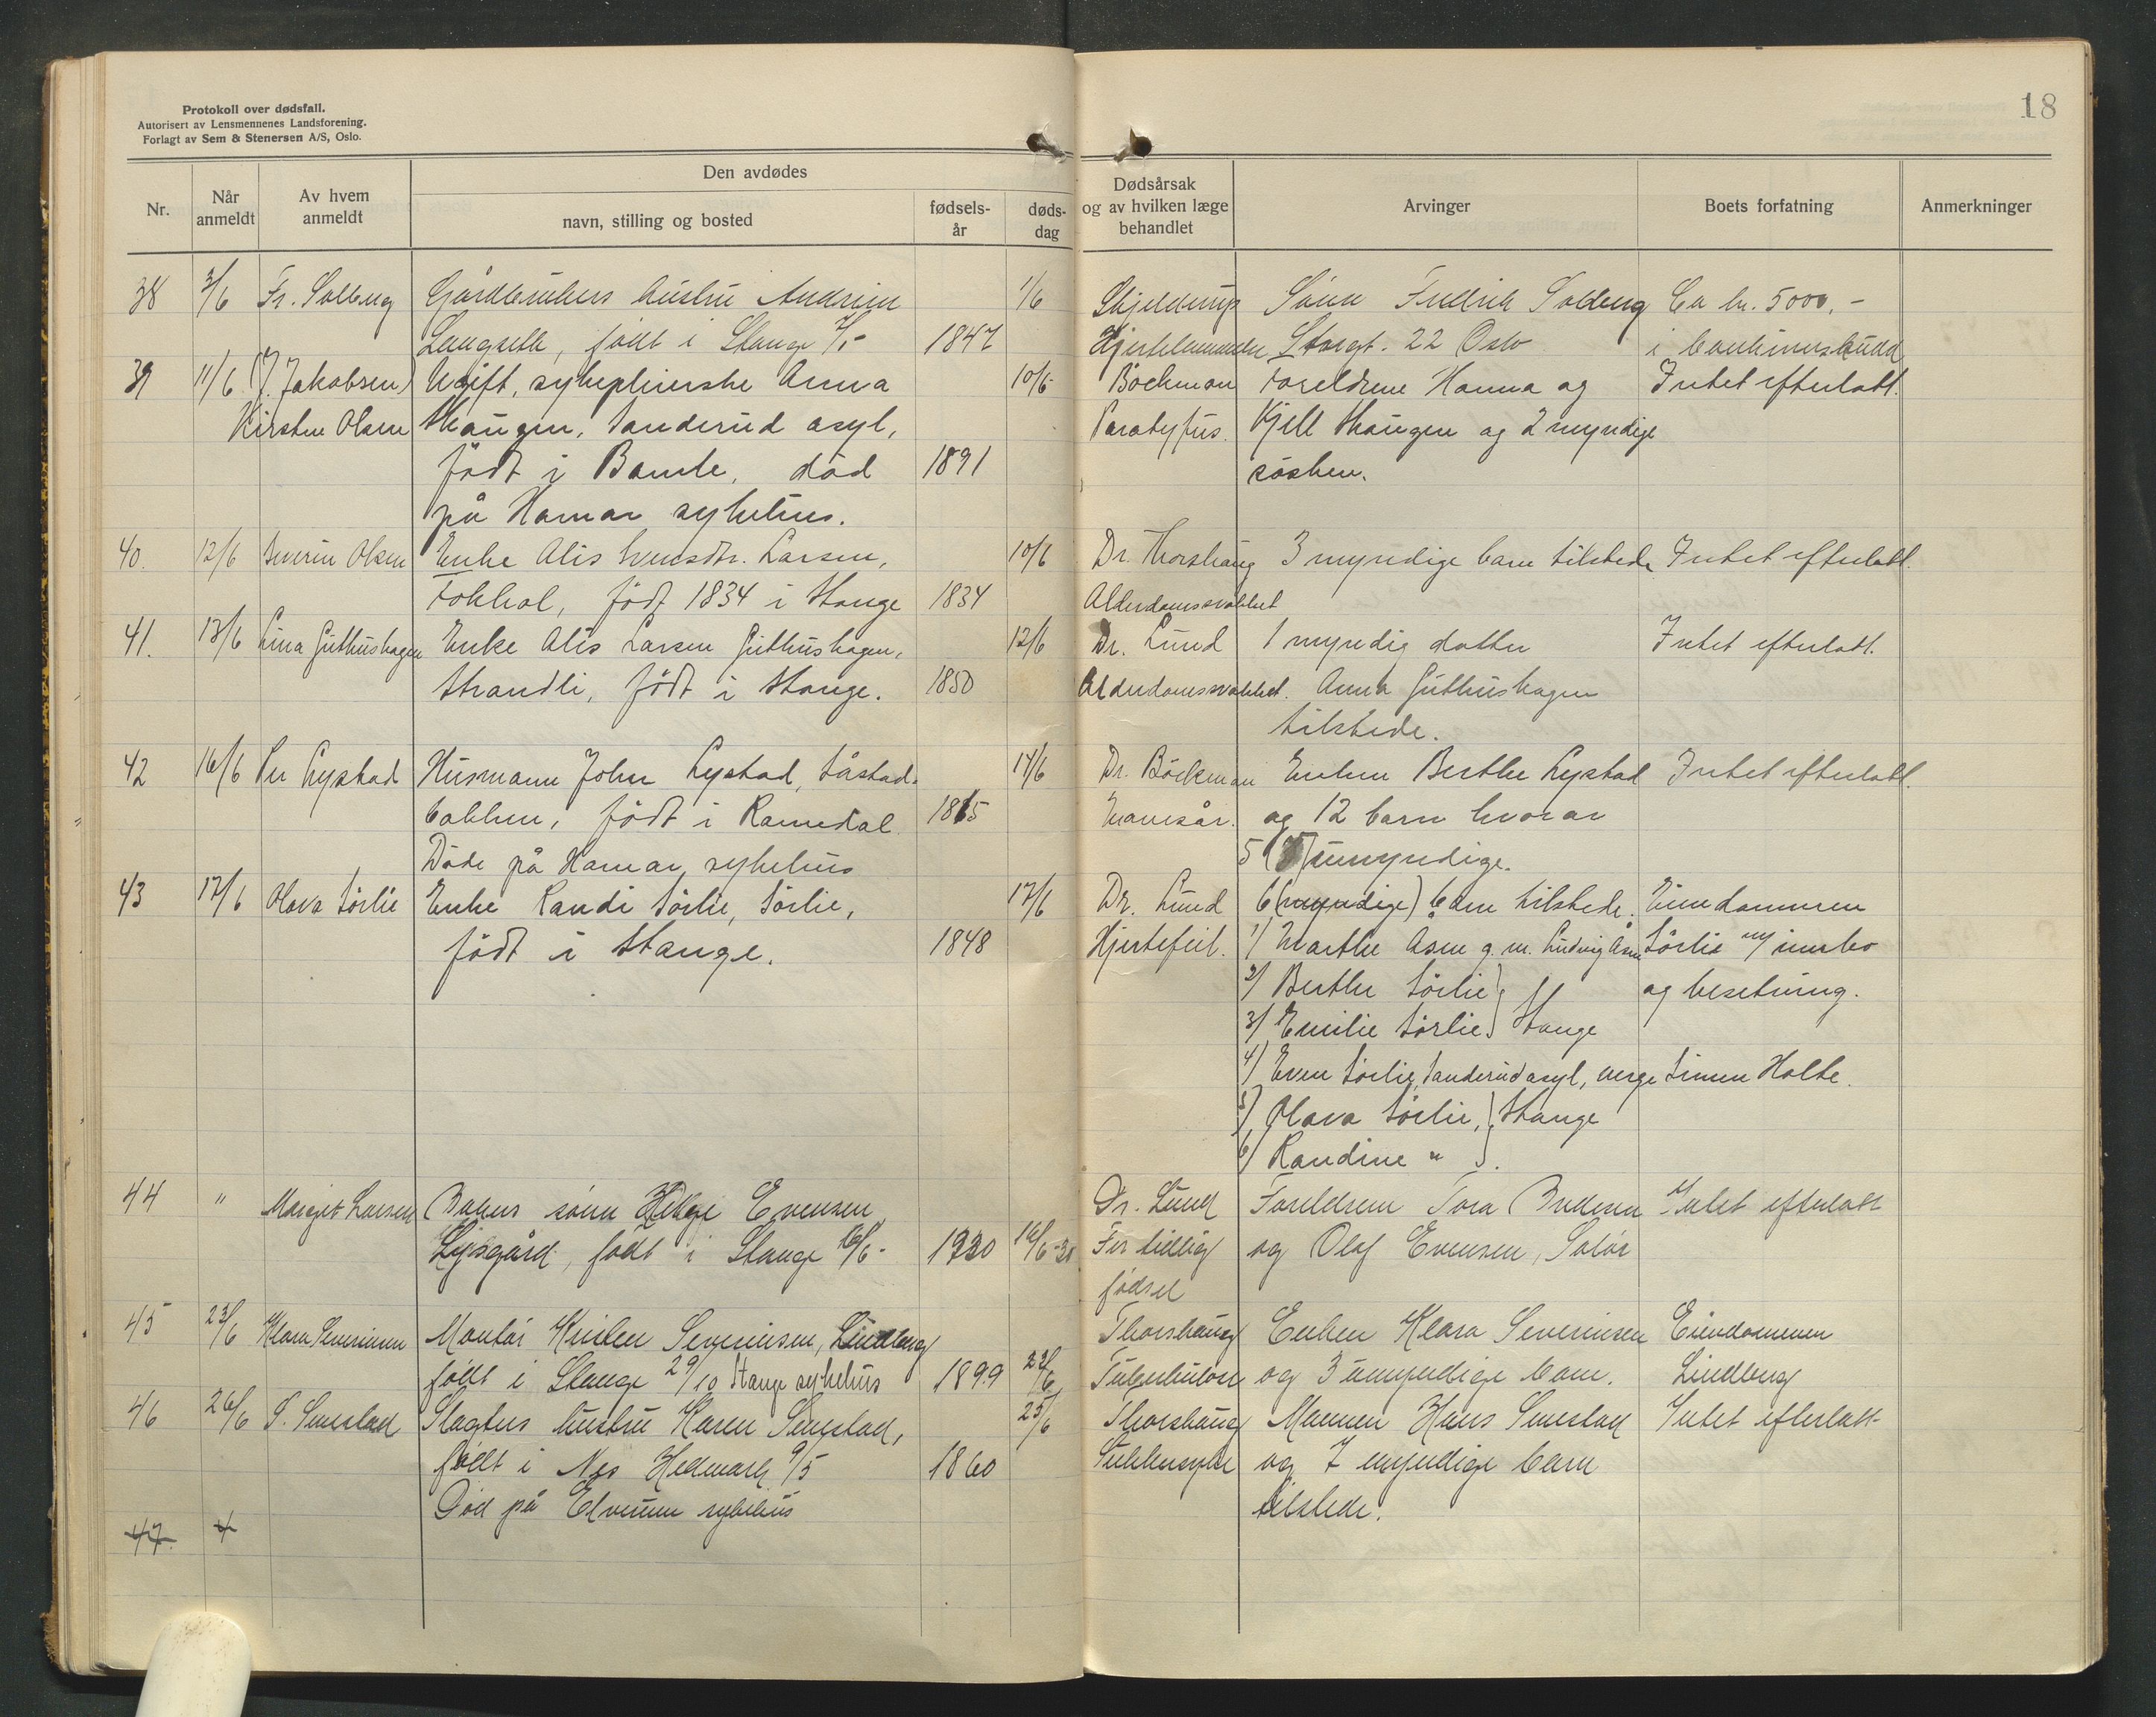 18
Protokoll over dødsfall.
Autorisert av Lensmennenes Landsforening.
Forlagt av Sem & Stenersen A/S, Oslo.
Nr.
Når anmeldt
Av hvem anmeldt
Den avdødes
navn, stilling og bosted
fødsels-år
døds-dag
Dødsårsak og av hvilken læge behandlet
Arvinger
Boets forfatning
Anmerkninger
38 3/6 Fr. Solberg Gårdbrukers hustru 1/6 Sönn Fredrik Solberg Ca kr. 5000,-
født i Stange 1847 Storgt. 22 Oslo i
39 11/6 (J. Jakobsen) Ugift, sykepleierske Anna 10/6 Böckman Foreldrene Hanna og Intet efterlatt.
Kirsten Olsen Haugen, Sanderud asyl, Paratyfus. Kjell Haugen og 2 myndige
født i Bamle, död 1891 søsken.
på Hamar sykehus.
40. 12/6 Severin Olsen Enke Alis Larsen, 10/6 Dr. Thorshaug 3 myndige barn tilstede Intet efterlatt.
født 1834 i Stange 1834 Alderdomssvakhet
41. 13/6 Lina Guthushagen Enke Alis Larsen Guthushagen, 12/6 Dr. Lund 1 myndig datter Intet efterlatt.
Strandli, født i Stange. 1850 Alderdomssvakhet. Anna Guthushagen
tilstede.
42 16/6 Per Lystad Husmann John Lystad, Såstad- 14/6 Dr. Böckman Enken Berthe Lystad Intet efterlatt.
bakken, født i Romedal. Mavesår. og 12 barn hvorav
Døde på Hamar sykehus 5 umyndige.
43 17/6 Olava Sörlie Enke Randi Sörlie, Sörlie, 17/6 Dr. Lund 6 (myndige) barn tilstede. Eiendommen
født i Stange. 1848 Hjertefeil. 1/ Marthe Åsen g. m. Ludvig Åsen Sörlie m/ innbo
2/ Berthe Sörlie og besetning.
3/ Emilie Sörlie Stange
4/ Even Sörlie, Sanderud asyl, verge Simen Holte.
5/ Olava Sörlie, Stange
6/ Randine "
44 " Margit Larsen Bakers sönn Helge Evensen Dr. Lund Foreldrene Tora og Intet efterlatt
Lysgård, født i Stange 16/6 - 1930 16/6-30 For tidlig og Olaf Evensen, Solør
fødsel
45 23/6 Klara Severinsen Montör Severinsen, Lindberg Thorshaug Enken Klara Severinsen Eiendommen
født i Stange 29/10 Stange sykehus 1899 22/6 Tuberkulose og 3 umyndige barn. Lindberg
46 26/6 S. Smestad Slagters hustru Karen Smestad, 25/6 Thorshaug Mannen Hans Smestad Intet efterlatt
født i Nes Hedmark 9/5 1860 Sukkersyke og 7 myndige barn
Død på Elverum sykehus tilstede.
47.